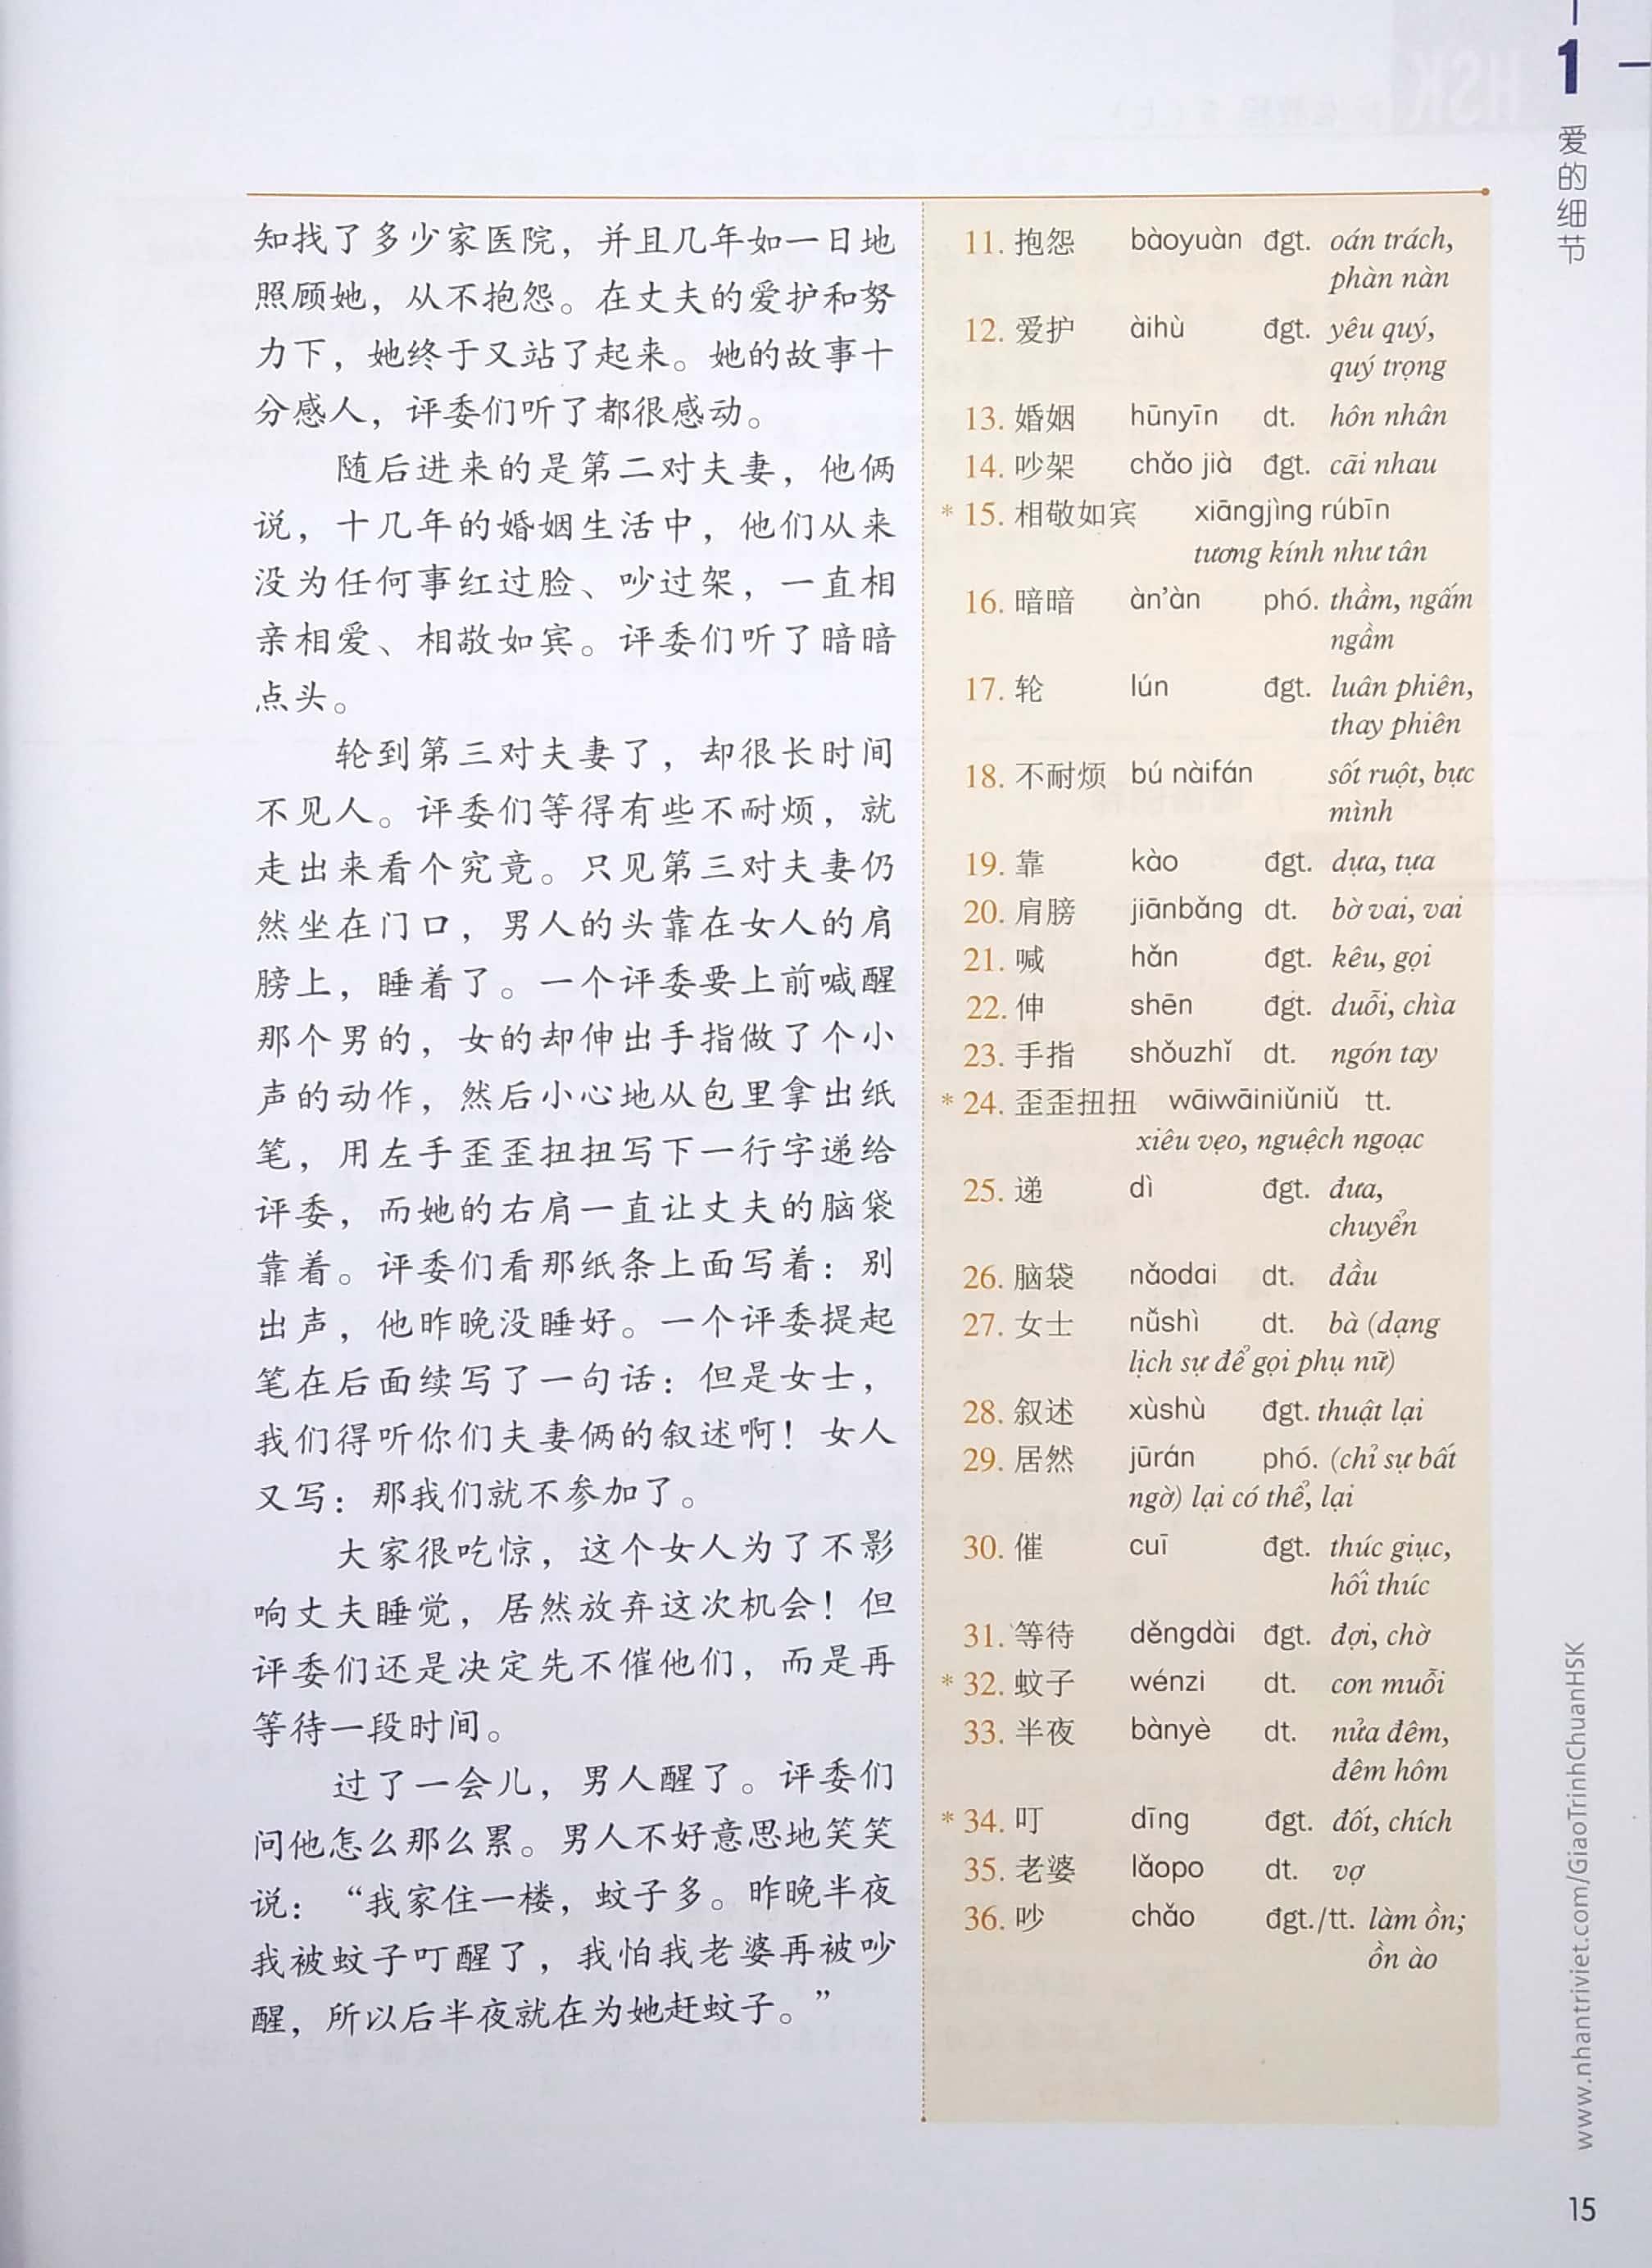 1
爱的细节
知找了多少家医院，并且几年如一日地
照顾她，从不抱怨。在丈夫的爱护和努
力下，她终于又站了起来。她的故事十
分感人，评委们听了都很感动。
随后进来的是第二对夫妻，他俩
说，十几年的婚姻生活中，他们从来
没为任何事红过脸、吵过架，一直相
亲相爱、相敬如宾。评委们听了暗暗
点头。
轮到第三对夫妻了，却很长时间
不见人。评委们等得有些不耐烦，就
走出来看个究竟。只见第三对夫妻仍
然坐在门口，男人的头靠在女人的肩
膀上，睡着了。一个评委要上前喊醒
那个男的，女的却伸出手指做了个小
声的动作，然后小心地从包里拿出纸
笔，用左手歪歪扭扭写下一行字递给
评委，而她的右肩一直让丈夫的脑袋
靠着。评委们看那纸条上面写着：别
出声，他昨晚没睡好。一个评委提起
笔在后面续写了一句话：但是女士，
我们得听你们夫妻俩的叙述啊！女人
又写：那我们就不参加了。
大家很吃惊，这个女人为了不影
响丈夫睡觉，居然放弃这次机会！但
评委们还是决定先不催他们，而是再
等待一段时间。
过了一会儿，男人醒了。评委们
问他怎么那么累。男人不好意思地笑笑
说：“我家住一楼，蚊子多。昨晚半夜
我被蚊子叮醒了，我怕我老婆再被吵
醒，所以后半夜就在为她赶蚊子。”
11. 抱怨 bàoyuàn đgt. oán trách,
phàn nàn
12. 爱护 àihù đgt. yêu quý,
quý trọng
13. 婚姻 hūnyīn dt. hôn nhân
14. 吵架 chǎo jià đgt. cãi nhau
* 15. 相敬如宾 xiāngjìng rúbīn
tương kính như tân
16. 暗暗 àn’àn phó. thầm, ngấm
ngầm
17. 轮 lún đgt. luân phiên,
thay phiên
18. 不耐烦 bú nàifán sốt ruột, bực
mình
19. 靠 kào đgt. dựa, tựa
20. 肩膀 jiānbǎng dt. bờ vai, vai
21. 喊 hǎn đgt. kêu, gọi
22. 伸 shēn đgt. duỗi, chìa
23. 手指 shǒuzhǐ dt. ngón tay
* 24. 歪歪扭扭 wāiwāiniǔniǔ tt.
xiêu vẹo, nguệch ngoạc
25. 递 dì đgt. đưa,
chuyển
26. 脑袋 nǎodai dt. đầu
27. 女士 nǚshì dt. bà (dạng
lịch sự để gọi phụ nữ)
28. 叙述 xùshù đgt. thuật lại
29. 居然 jūrán phó. (chỉ sự bất
ngờ) lại có thể, lại
30. 催 cuī đgt. thúc giục,
hối thúc
31. 等待 děngdài đgt. đợi, chờ
* 32. 蚊子 wénzi dt. con muỗi
33. 半夜 bànyè dt. nửa đêm,
đêm hôm
* 34. 叮 dīng đgt. đốt, chích
35. 老婆 lǎopo dt. vợ
36. 吵 chǎo đgt./tt. làm ồn;
ồn ào
www.nhantriviet.com/GiaoTrinhChuanHSK
15